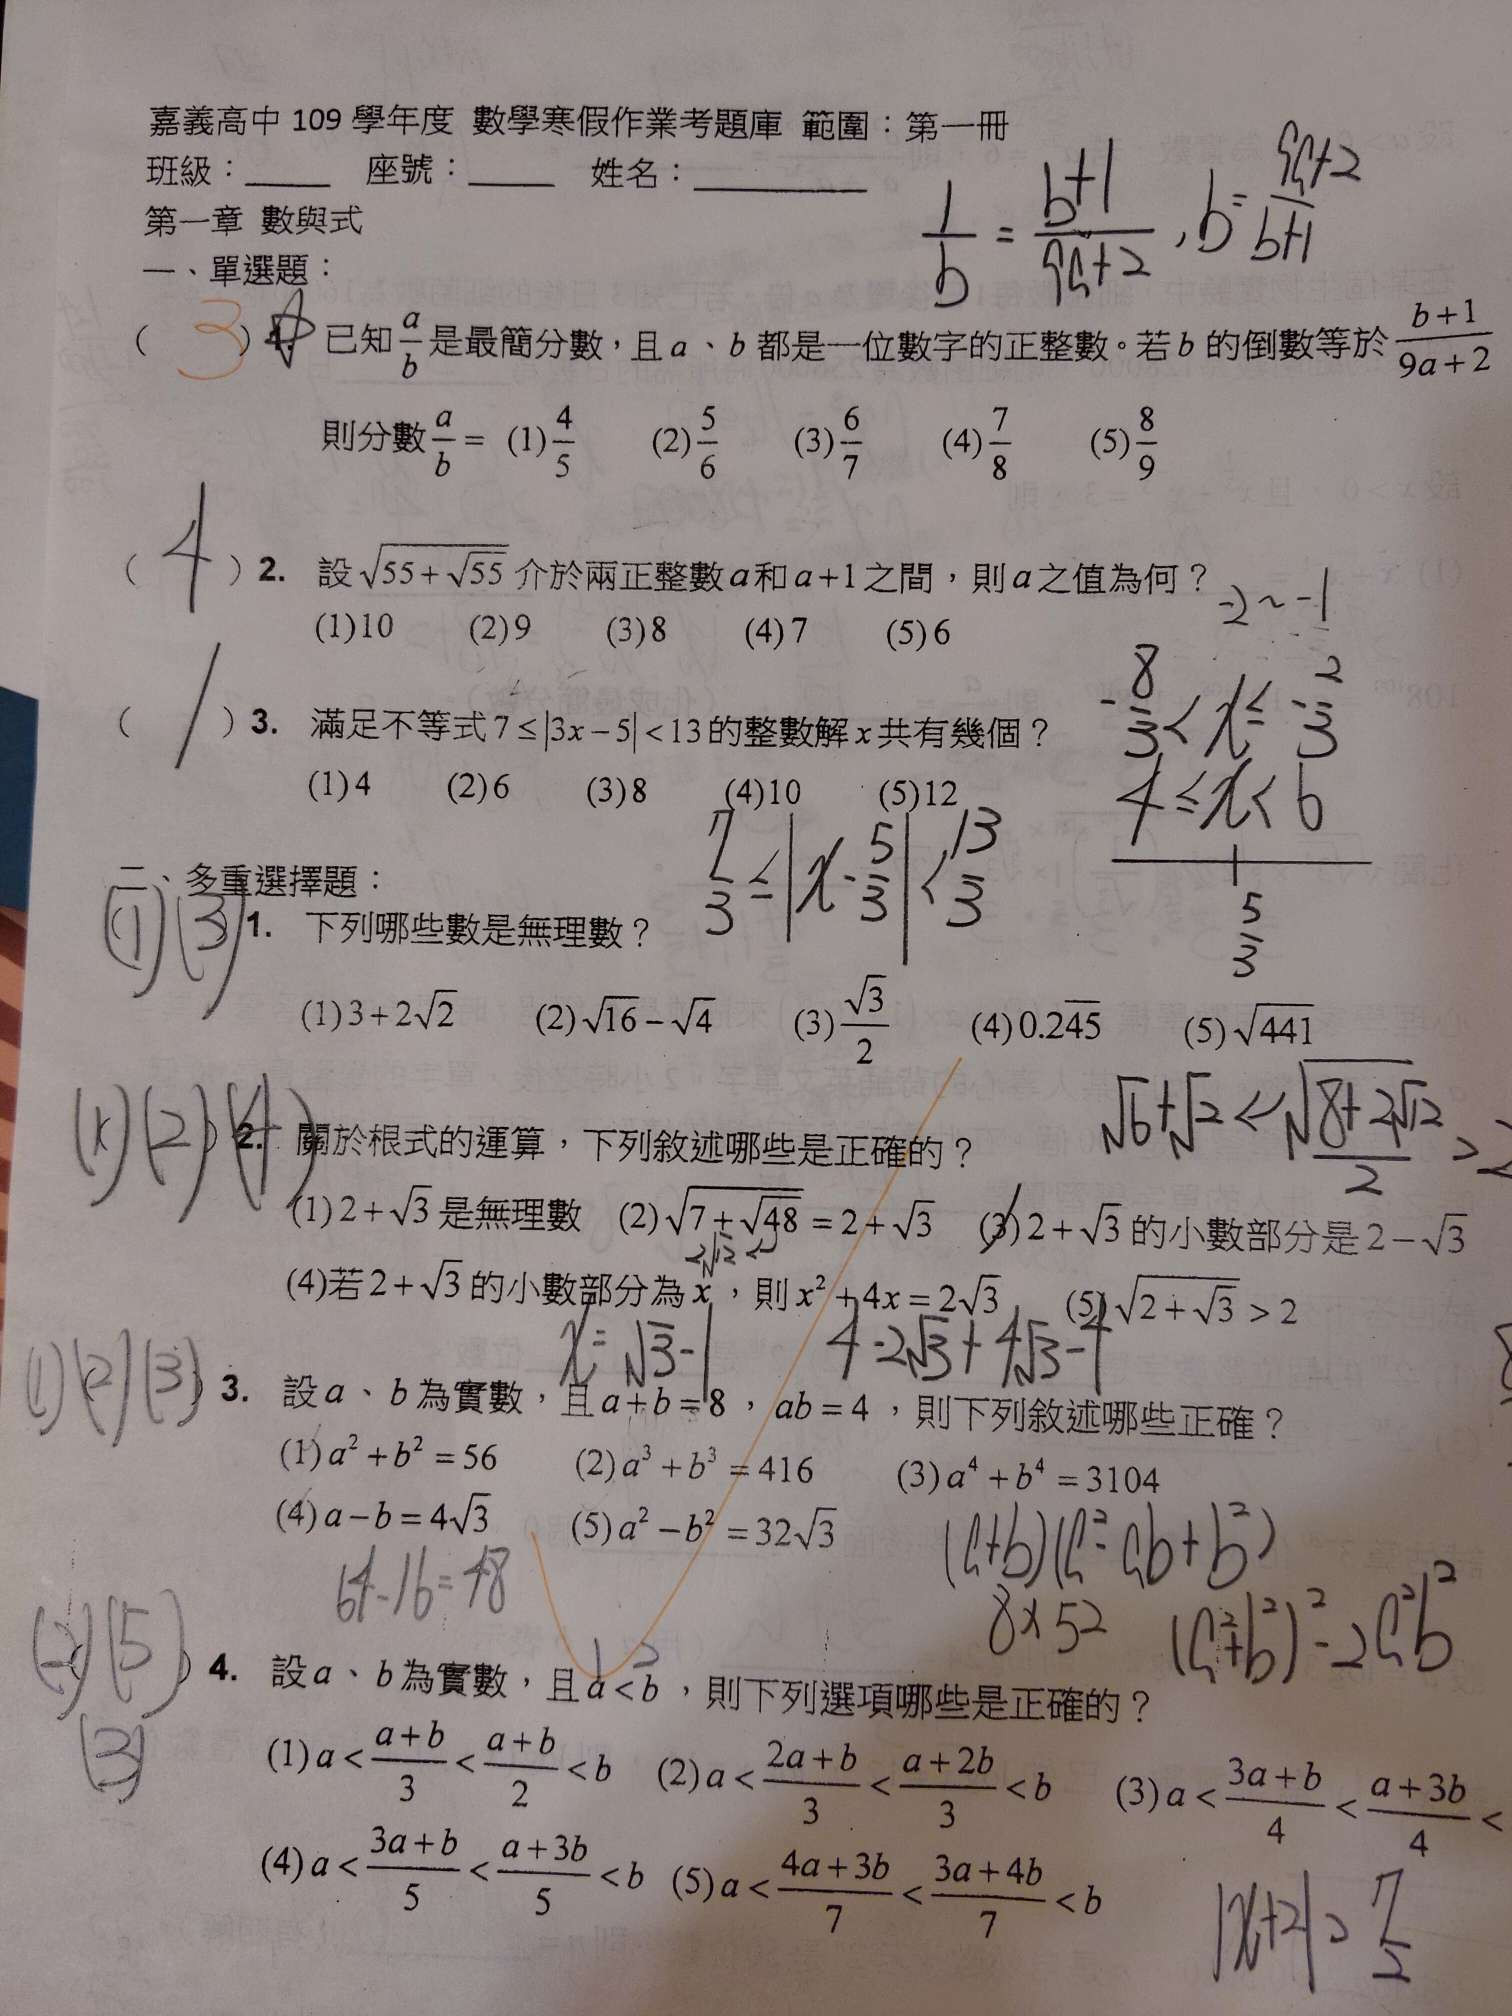 嘉義高中 109 學年度 數學寒假作業考題庫 範圍：第一冊
班級：_____ 座號：_____ 姓名：__________
第一章 數與式
1/b = (b+1)/(9a+2), b = (9a+2)/(b+1)
一、單選題：
( 3 ) 已知 a/b 是最簡分數，且 a、b 都是一位數字的正整數。若 b 的倒數等於 (b+1)/(9a+2)
則分數 a/b = (1) 4/5 (2) 5/6 (3) 6/7 (4) 7/8 (5) 8/9
( 4 ) 2. 設 √(55+√55) 介於兩正整數 a 和 a+1 之間，則 a 之值為何？
(1)10 (2)9 (3)8 (4)7 (5)6
-2 ~ -1
( 1 ) 3. 滿足不等式 7 ≤ |3x−5| < 13 的整數解 x 共有幾個？
-8/3 < x ≤ -2/3
(1) 4 (2) 6 (3) 8 (4)10 (5)12
4 ≤ x < 6
7/3 ≤ |x - 5/3| < 13/3
5/3
二、多重選擇題：
(1)(3) 1. 下列哪些數是無理數？
(1) 3+2√2 (2) √16−√4 (3) √3/2 (4) 0.2̅4̅5̅ (5) √441
√6+√2 < √(8+2√12)/2 > 2
(1)(2)(4) 2. 關於根式的運算，下列敘述哪些是正確的？
(1) 2+√3 是無理數 (2) √(7+√48) = 2+√3 (3) 2+√3 的小數部分是 2−√3
2√12
(4)若 2+√3 的小數部分為 x，則 x²+4x = 2√3 (5) √(2+√3) > 2
x = √3-1 4-2√3+4√3-4
(1)(2)(3) 3. 設 a、b 為實數，且 a+b = 8，ab = 4，則下列敘述哪些正確？
(1) a²+b² = 56 (2) a³+b³ = 416 (3) a⁴+b⁴ = 3104
(4) a−b = 4√3 (5) a²−b² = 32√3
(a+b)(a²-ab+b²)
64-16=48
8×52 (a²+b²)²-2a²b²
1 2
(2)(5) 4. 設 a、b 為實數，且 a < b，則下列選項哪些是正確的？
(3)
(1) a < (a+b)/3 < (a+b)/2 < b (2) a < (2a+b)/3 < (a+2b)/3 < b (3) a < (3a+b)/4 < (a+3b)/4 <
(4) a < (3a+b)/5 < (a+3b)/5 < b (5) a < (4a+3b)/7 < (3a+4b)/7 < b
|x+2| > 7/2